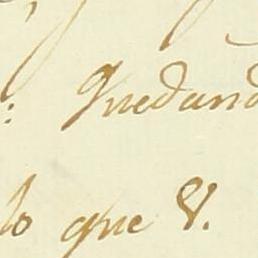 : Quedand
lo que V.